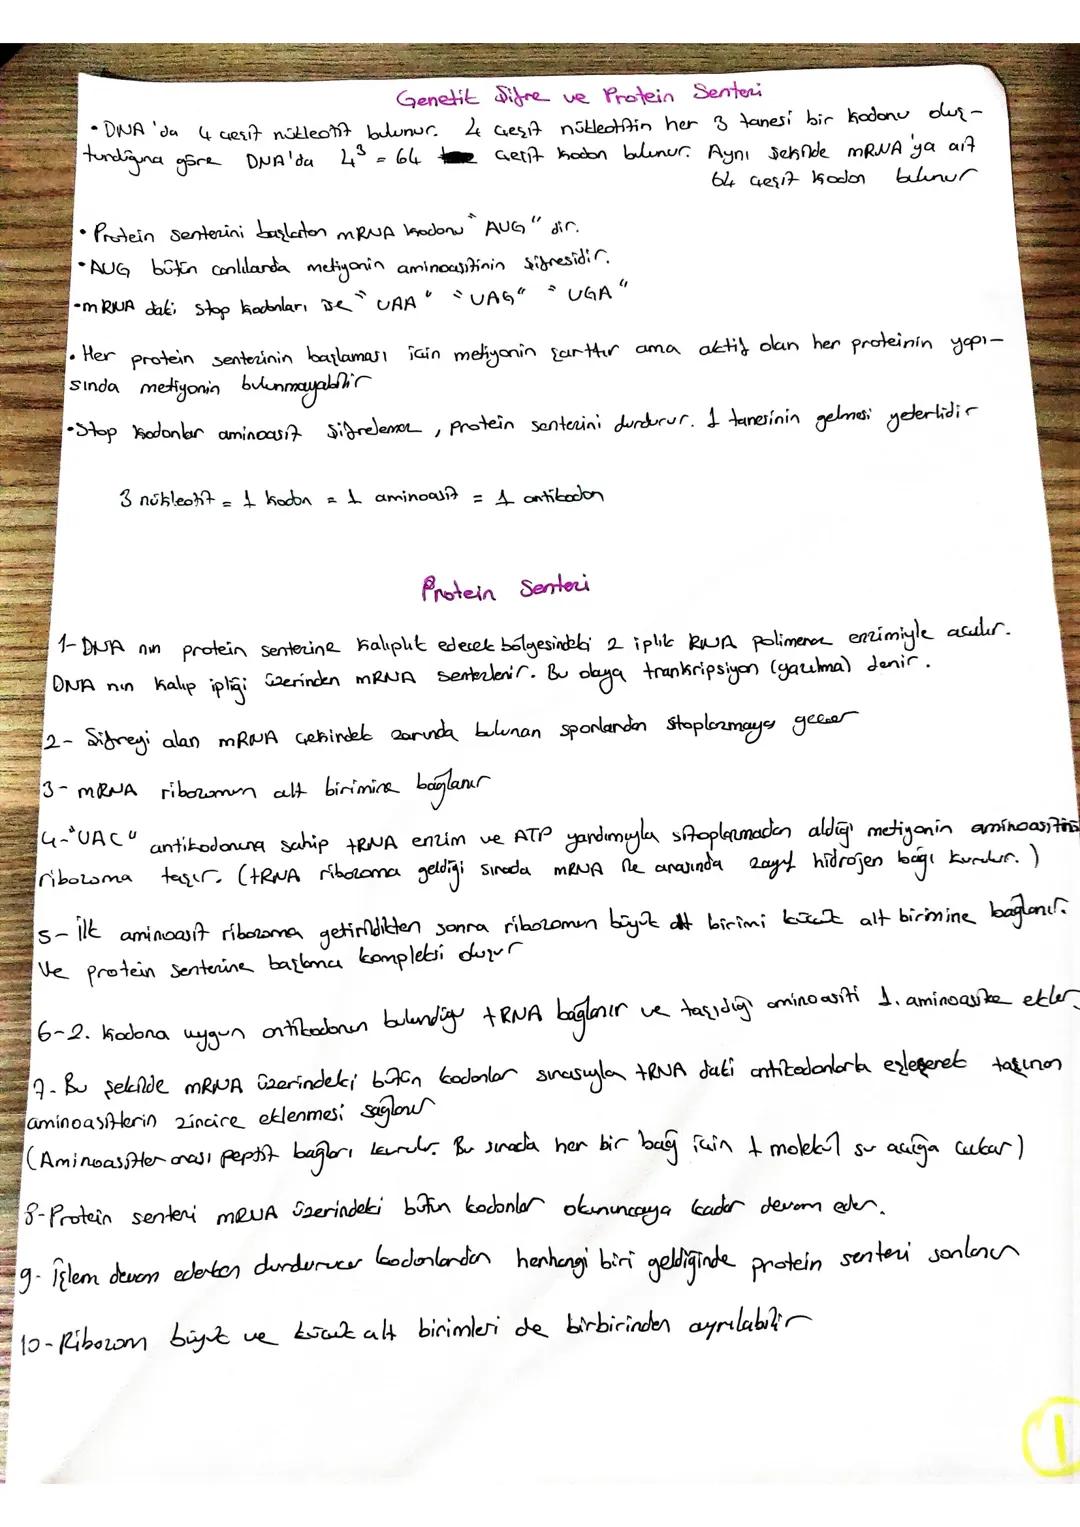 Genetik Şifre ve Protein Sentezi
• DNA'da 4 çeşit nükleotit bulunur. 4 çeşit nükleotitin her 3 tanesi bir kodonu oluş-
turduğuna göre DNA'da 4³ = 64 çeşit kodon bulunur. Aynı şekilde mRNA'ya ait
64 çeşit kodon bulunur
• Protein sentezini başlatan mRNA kodonu "AUG" dir.
• AUG bütün canlılarda metiyonin aminoasitinin şifresidir.
• mRNA daki stop kodonları ise "UAA" "UAG" "UGA"
• Her protein sentezinin başlaması için metiyonin şarttır ama aktif olan her proteinin yapı-
sında metiyonin bulunmayabilir
• Stop kodonlar aminoasit şifrelemez, protein sentezini durdurur. 1 tanesinin gelmesi yeterlidir
3 nükleotit = 1 kodon = 1 aminoasit = 1 antikodon
Protein Sentezi
1- DNA nın protein sentezine kalıplık edecek bölgesindeki 2 iplik RNA polimeraz enzimiyle açılır.
DNA nın kalıp ipliği üzerinden mRNA sentezlenir. Bu olaya trankripsiyon (yazılma) denir.
2- Şifreyi alan mRNA çekirdek zarında bulunan sporlardan stoplazmaya geçer
3- mRNA ribozomun alt birimine bağlanır
4- "UAC" antikodonuna sahip tRNA enzim ve ATP yardımıyla sitoplazmadan aldığı metiyonin aminoasitini
ribozoma taşır. (tRNA ribozoma geldiği sırada mRNA ile arasında zayıf hidrojen bağı kurulur.)
5- İlk aminoasit ribozoma getirildikten sonra ribozomun büyük alt birimi küçük alt birimine bağlanır.
Ve protein sentezine başlama kompleksi oluşur
6- 2. kodona uygun antikodonun bulunduğu tRNA bağlanır ve taşıdığı aminoasiti 1. aminoasite ekler
7- Bu şekilde mRNA üzerindeki bütün kodonlar sırasıyla tRNA daki antikodonlarla eşleşerek taşınan
aminoasitlerin zincire eklenmesi sağlanır
(Aminoasitler arası peptit bağları kurulur. Bu sırada her bir bağ için 1 molekül su açığa çıkar)
8- Protein sentezi mRNA üzerindeki bütün kodonlar okununcaya kadar devam eder.
9- İşlem devam ederken durdurucu kodonlardan herhangi biri geldiğinde protein sentezi sonlanır
10- Ribozom büyük ve küçük alt birimleri de birbirinden ayrılabilir
1